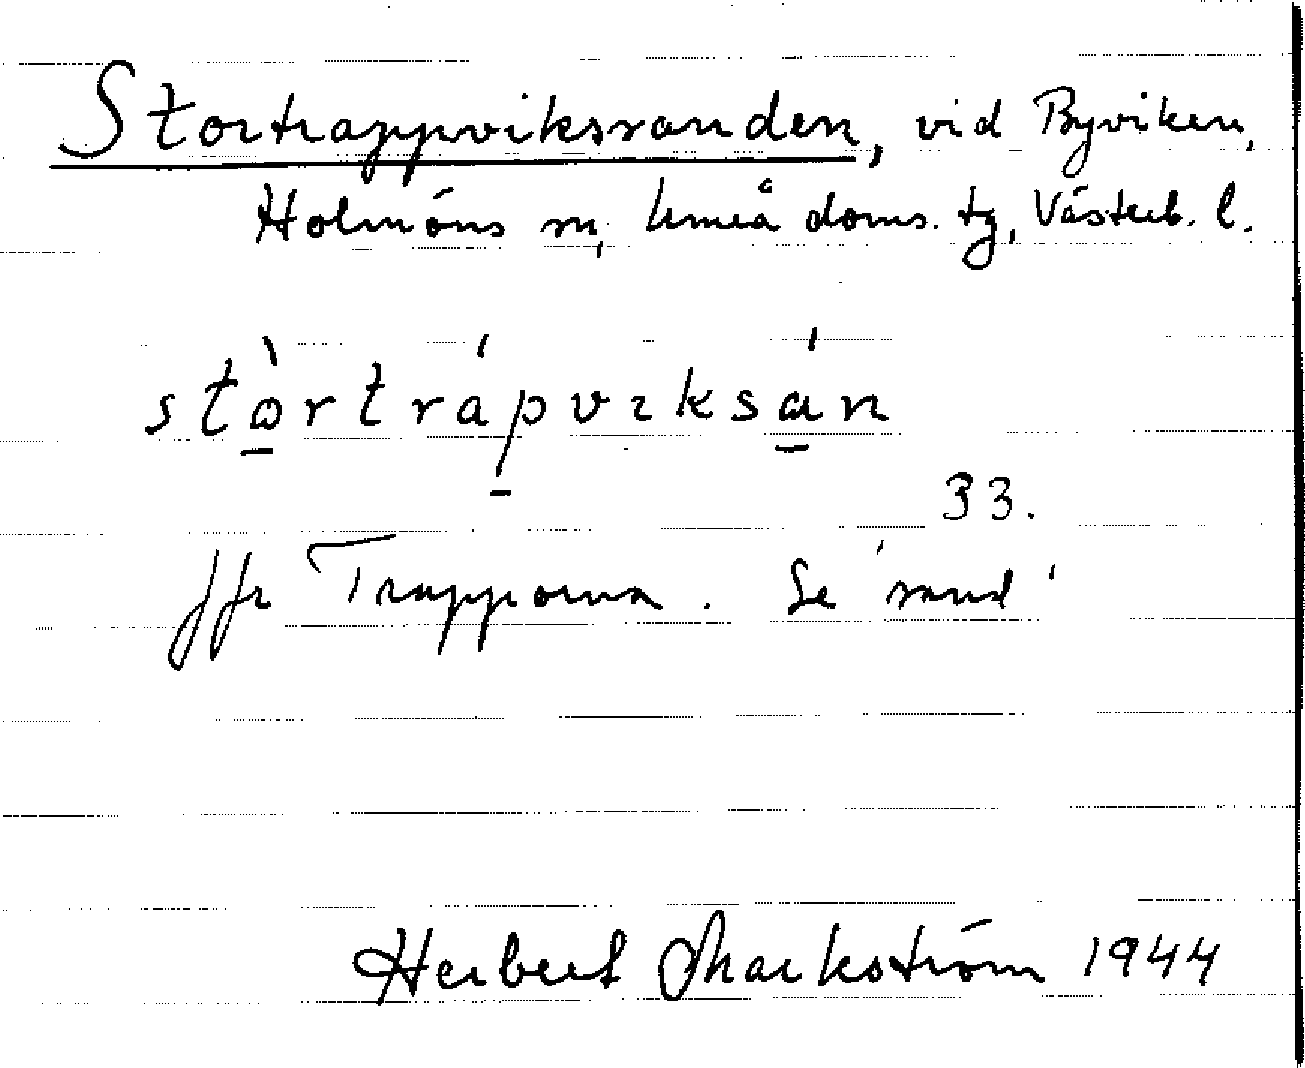 Stortrappviksranden, vid Byviken,
Holmöns sn, Umeå doms. tg, Västerb. l.
stòrtrápviksán
33.
Jfr Trapporna. Se 'sand'
Herbert Markström 1944